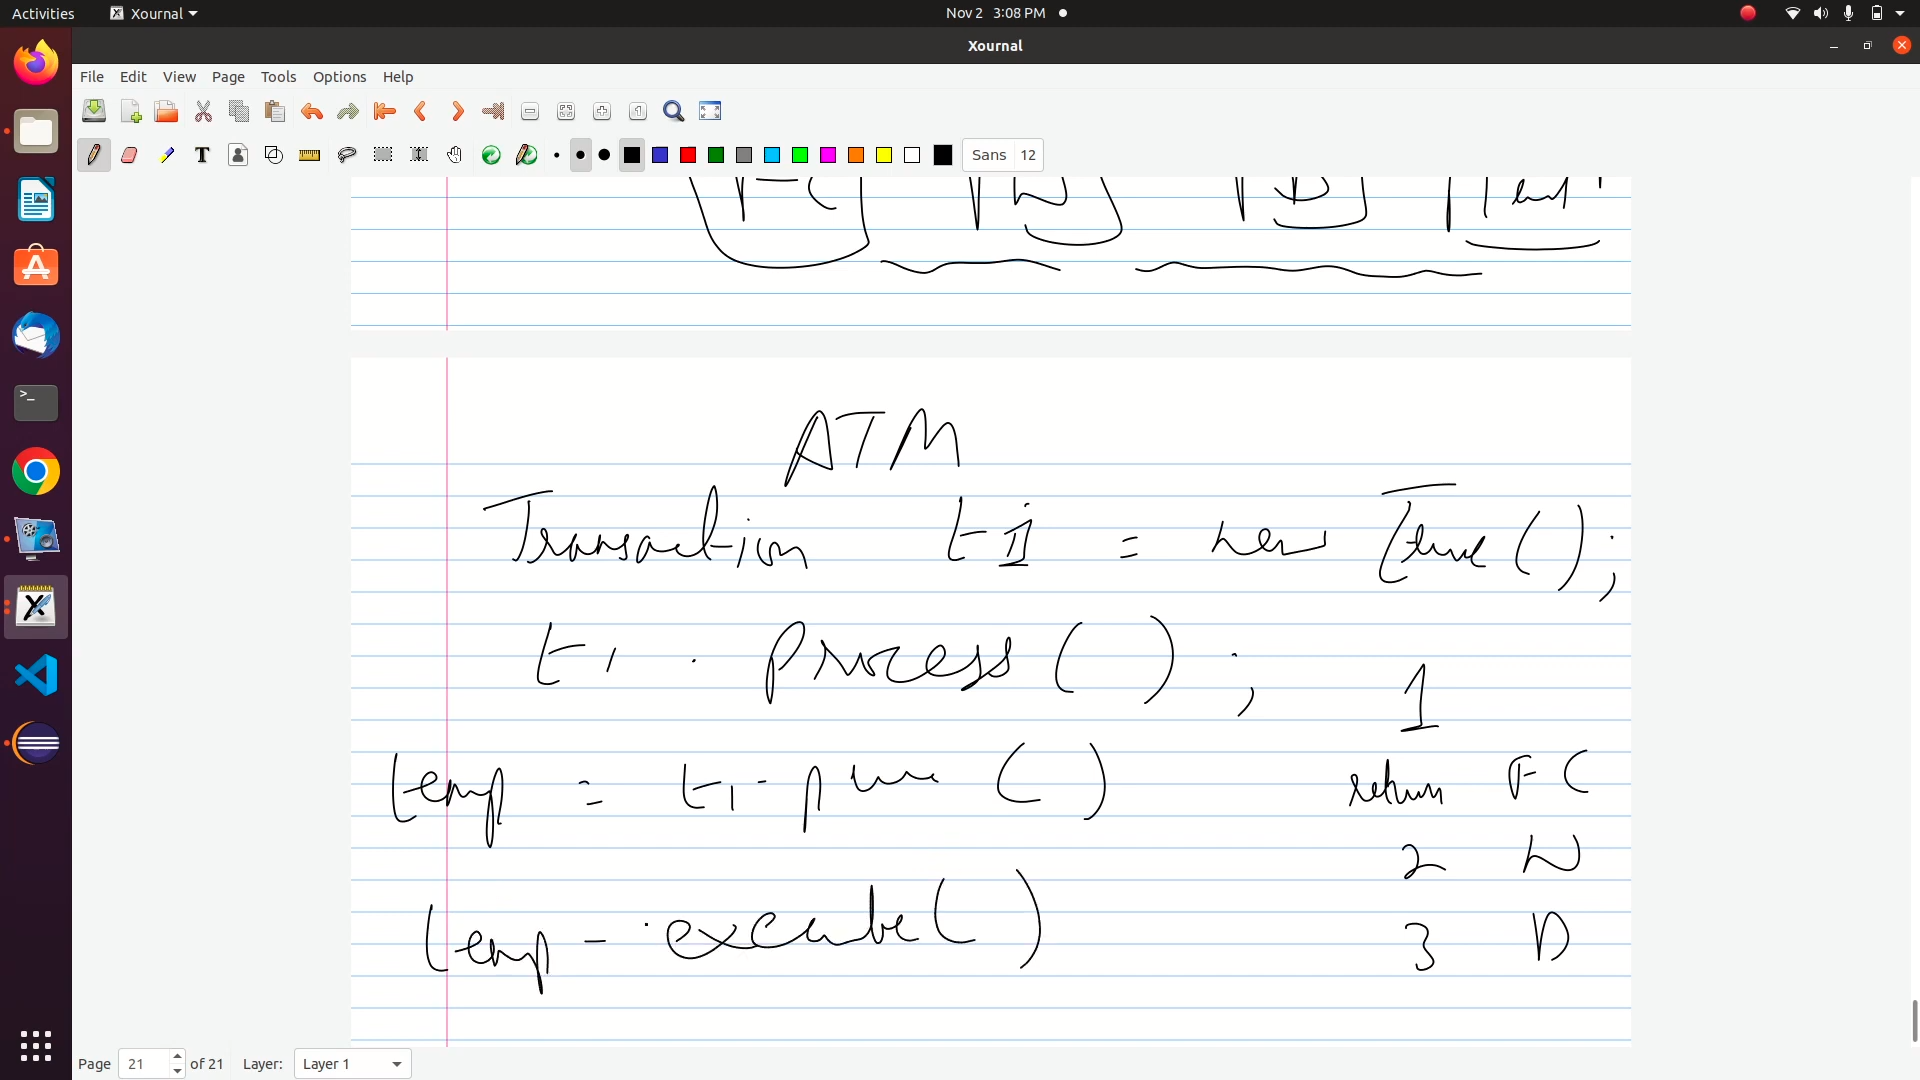 Activities Xournal Nov 2 3:08 PM
Xournal
File Edit View Page Tools Options Help
Sans 12
FC W D
ATM
Transaction t1 = new
t1 . process ( ) ;
1
temp = t1 . ( )
return FC
2 W
temp - . execute ( )
3 D
Page 21 of 21 Layer: Layer 1